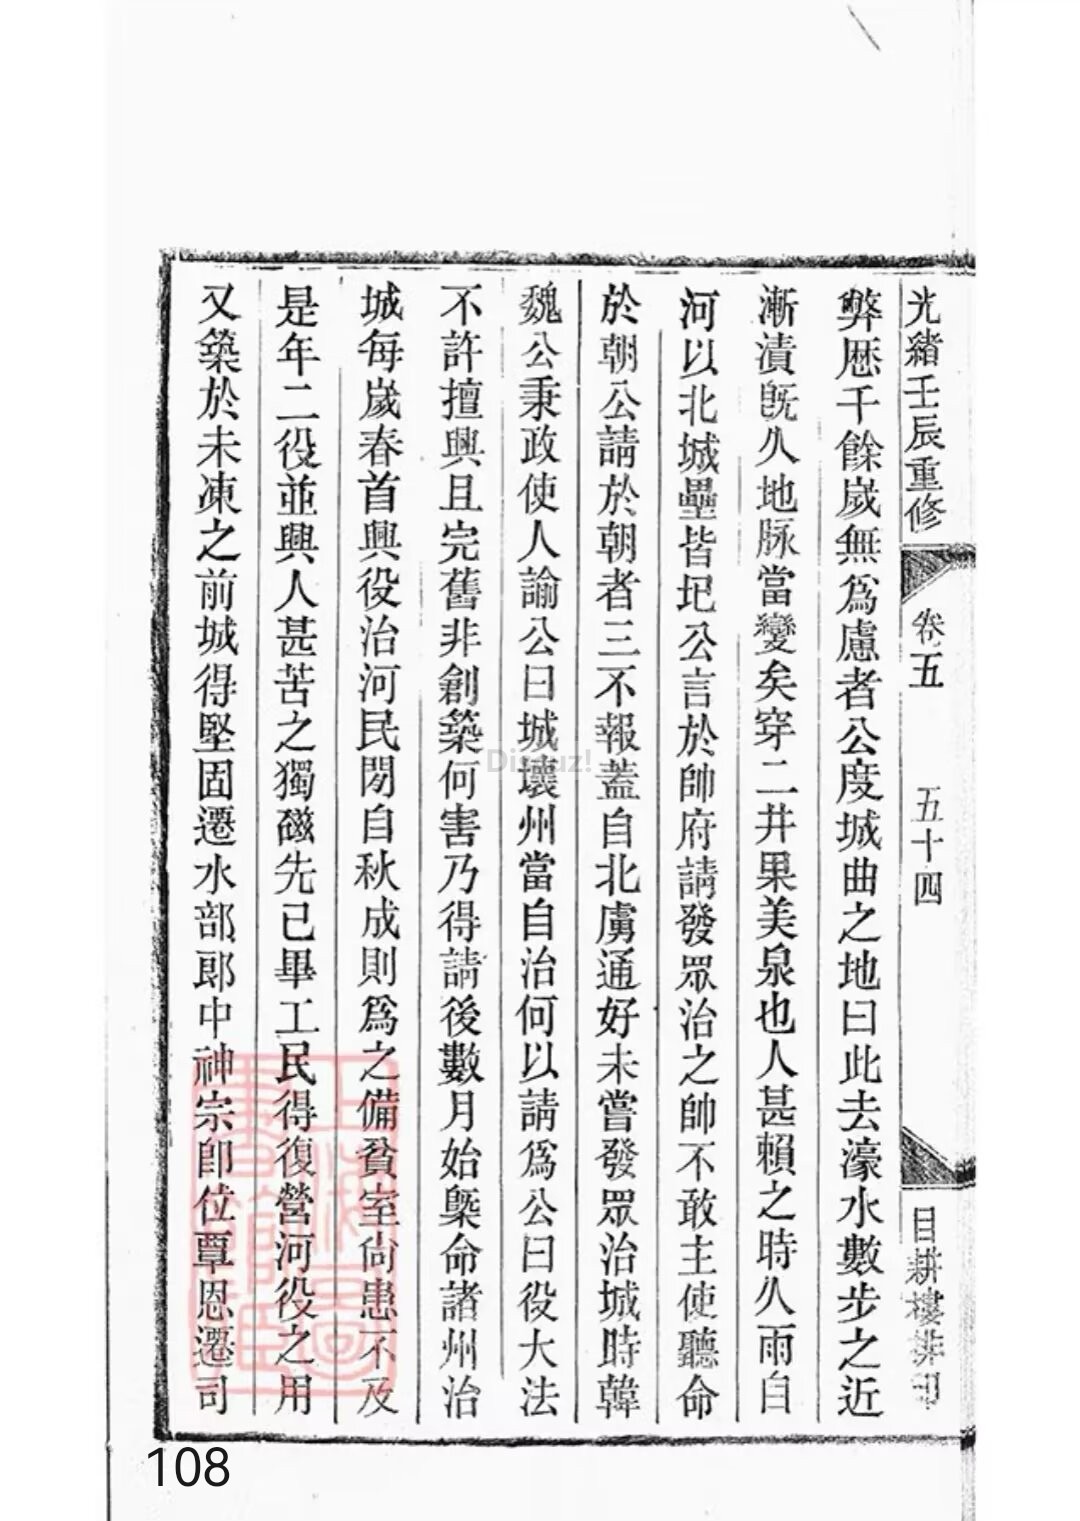 光緒壬辰重修 卷五 五十四 目耕樓排印
弊歷千餘歲無爲慮者公度城曲之地曰此去濠水數步之近
漸漬旣久地脉當變矣穿二井果美泉也人甚賴之時久雨自
河以北城壘皆圮公言於帥府請發眾治之帥不敢主使聽命
於朝公請於朝者三不報蓋自北虜通好未嘗發眾治城時韓
魏公秉政使人諭公曰城壞州當自治何以請爲公曰役大法
不許擅興且完舊非創築何害乃得請後數月始槩命諸州治
城每歲春首興役治河民閒自秋成則爲之備貧室尙患不及
是年二役並興人甚苦之獨磁先已畢工民得復營河役之用
又築於未凍之前城得堅固遷水部郎中神宗卽位覃恩遷司
Discuz!
108